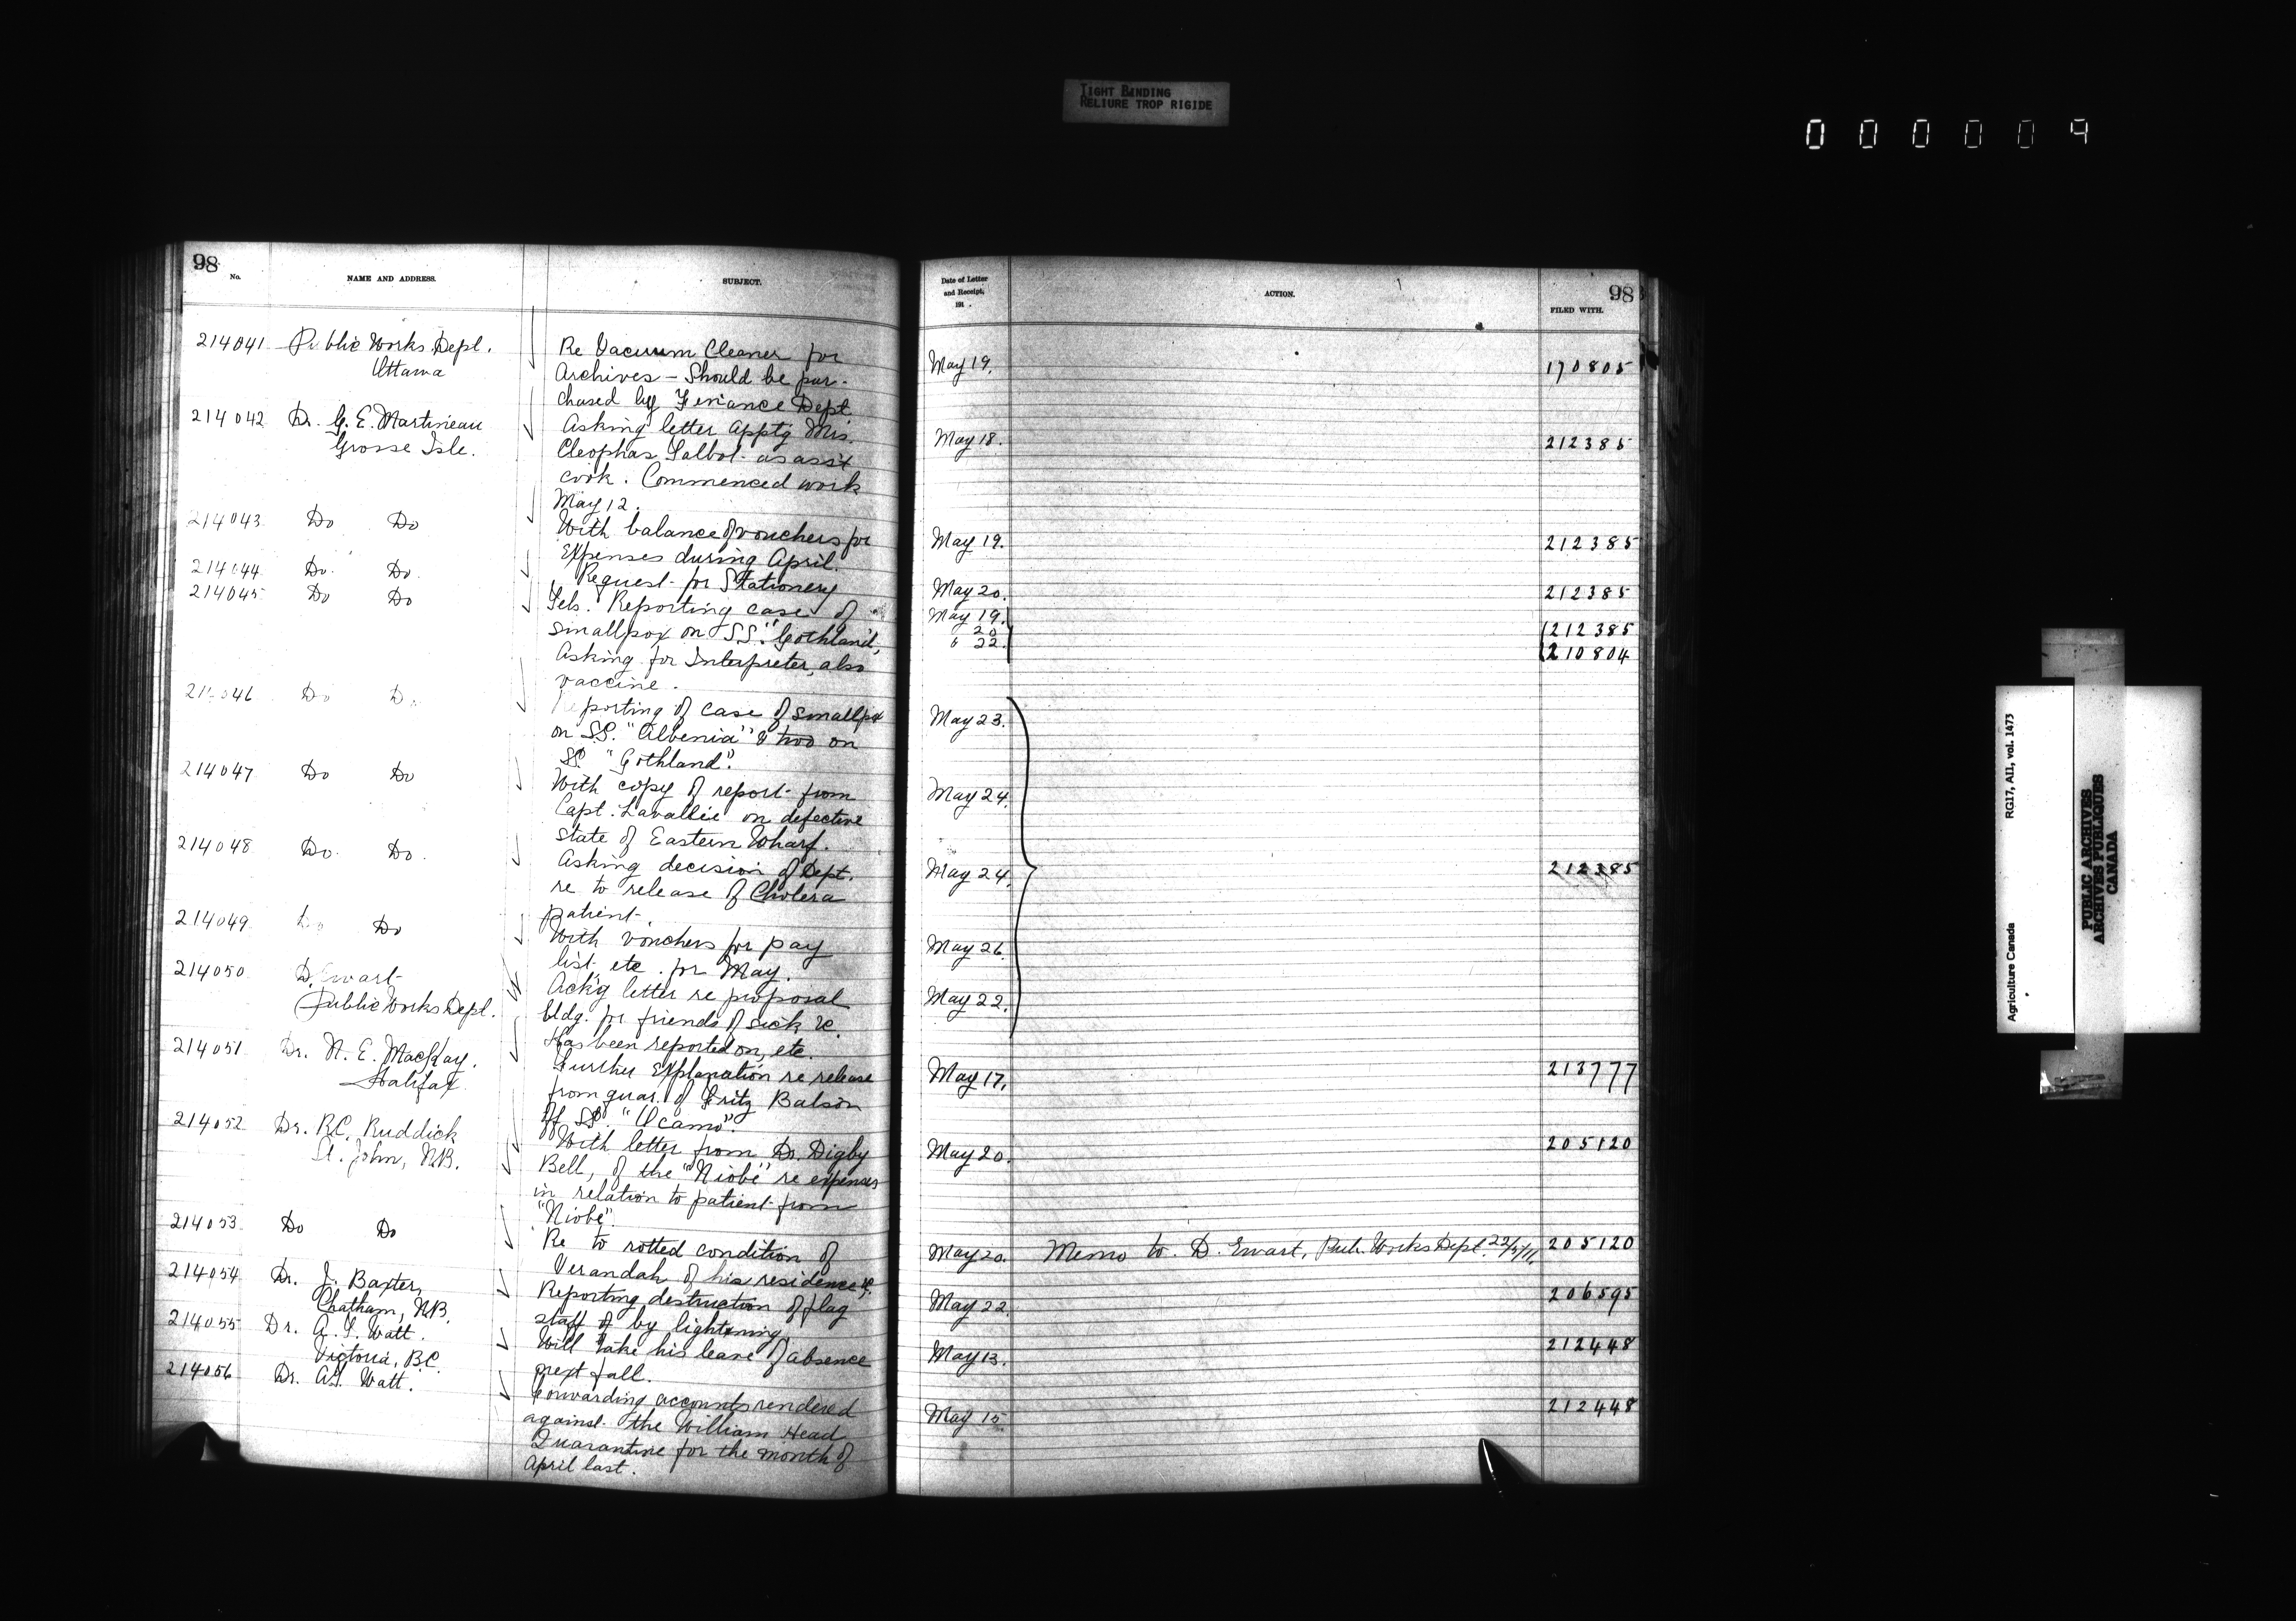 TIGHT BINDING
RELIURE TROP RIGIDE
000009
98
No.
NAME AND ADDRESS.
SUBJECT.
214041 Public Works Dept.
Ottawa
Re Vacuum Cleaner for
Archives - Should be pur-
chased by Finance Dept
214042 Dr. G. E. Martineau
Grosse Isle.
Asking letter apptg Mrs
Cleophas Talbot as ass't
cook. Commenced work
May 12.
214043 Do Do
With balance of vouchers for
Expenses during April.
214044 Do. Do.
Request for Stationery
214045 Do Do
Tels. Reporting case of
smallpox on S.S. "Gothland",
Asking for Interpreter, also
vaccine.
214046 Do Do.
Reporting of case of smallpox
on S.S. "Albenia" & two on
SS. "Gothland".
214047 Do Do
With copy of report from
Capt. Lavallée on defective
state of Eastern Wharf.
214048 Do. Do.
Asking decision of Dept.
re to release of Cholera
patient.
214049 Do Do
With vouchers for pay
list etc. for May.
214050 D. Ewart
Public Works Dept.
Ack'g letter re proposal
bldg. for friends of sick &c.
Has been reported on, etc.
214051 Dr. N. E. MacKay.
Halifax.
Further Explanation re release
from quar. of Fritz Balson
of SS. "Ocamo".
214052 Dr. R.C. Ruddick
St. John, N.B.
With letter from Dr. Digby
Bell, of the "Niobe" re expenses
in relation to patient from
"Niobe".
214053 Do Do
Re to rotted condition of
Verandah of his residence &c.
214054 Dr. J. Baxter,
Chatham, N.B.
Reporting destruction of flag
staff by lightening
214055 Dr. A. T. Watt.
Victoria, B.C.
Will take his leave of absence
next fall.
214056 Dr. A.T. Watt.
Forwarding accounts rendered
against the William Head
Quarantine for the month of
April last.
Date of Letter
and Receipt,
191 .
ACTION.
98
FILED WITH.
May 19. 170805
May 18. 212385
May 19. 212385
May 20. 212385
May 19. 212385
" 20
" 22. 210804
May 23.
May 24.
May 24. 212385
May 26.
May 22.
May 17. 213777
May 20. 205120
May 20. Memo to D. Ewart, Pub. Works Dept. 22/5/11. 205120
May 22. 206595
May 13. 212448
May 15. 212448
Agriculture Canada RG17, AII, vol. 1473
PUBLIC ARCHIVES
ARCHIVES PUBLIQUES
CANADA